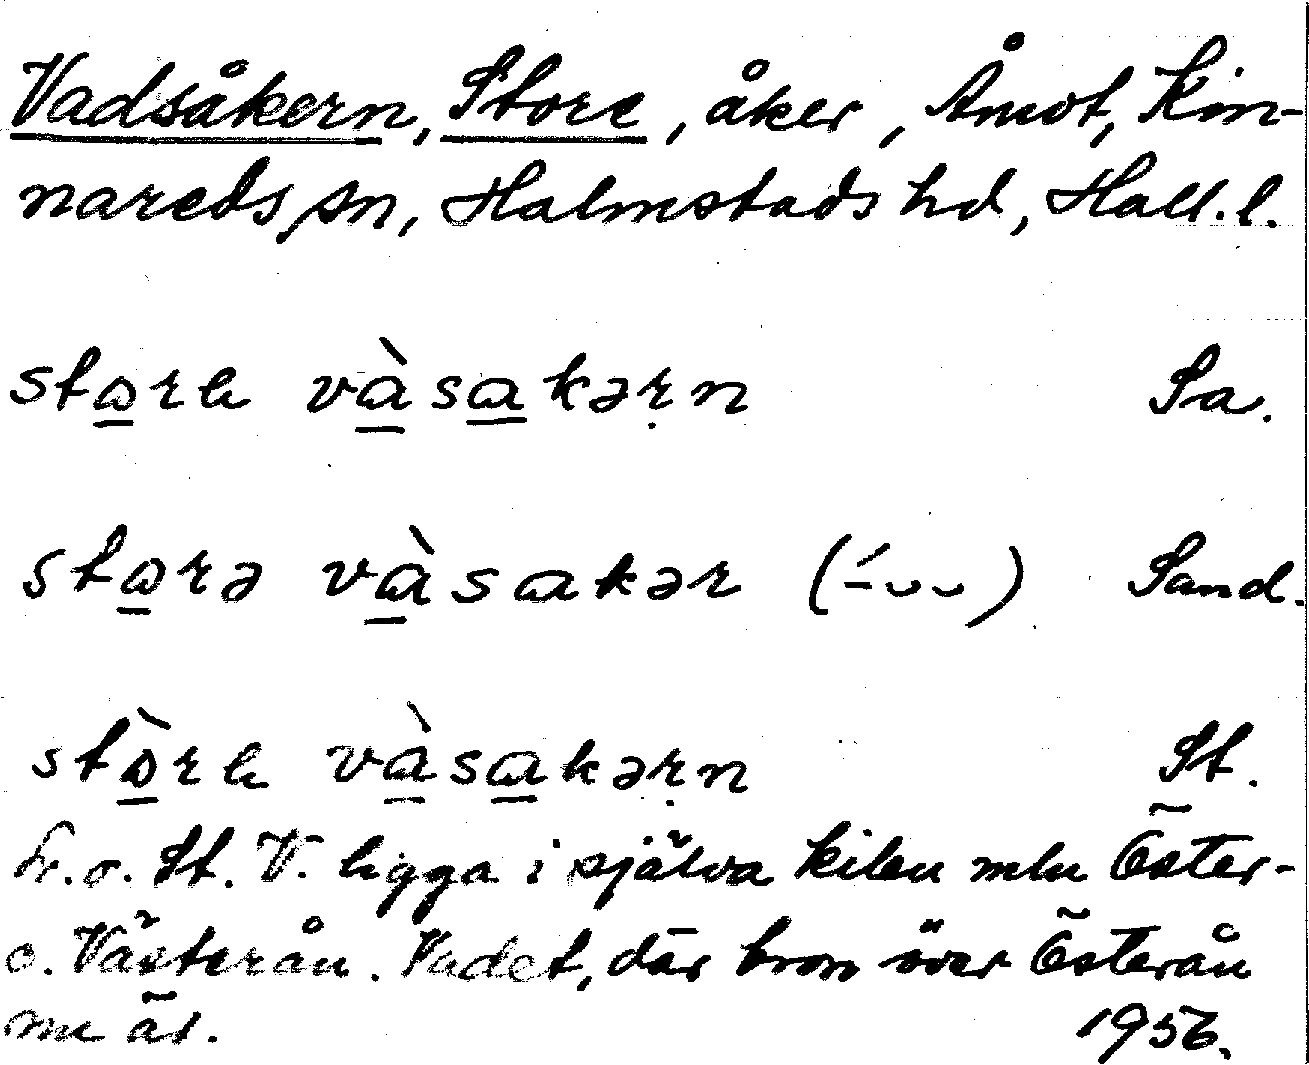 Vadsåkern, Store, åker, Åmot, Kin-
nareds sn, Halmstads hd, Hall.l.
störe våsakərn Sa.
storə vàsakər (-́ ᴗ ᴗ) Sand.
stòre vàsakərn St.
L. o. St. V. ligga i själva kilen mln Öster-
o. Västerån. Vadet, där bron över Österån
nu är. 1956.